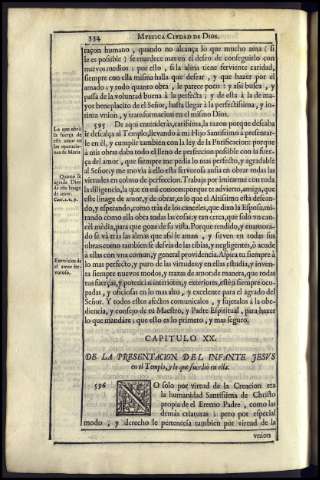 334 MYSTICA CIVDAD DE DIOS.
raçon humano, quando no alcança lo que mucho ama (si
le es posible) se enardece mas en el deseo de conseguirlo con
nuevos medios: por ello, si la alma tiene ferviente caridad,
siempre con ella misma halla que desear, y que hazer por el
amado; y todo quanto obra, le parece poco: y assi busca, y
passa de la voluntad buena à la perfecta; y de esta à la de ma-
yor beneplacito de el Señor, hasta llegar à la perfectissima, y in-
tima vnion, y transformacion en el mismo Dios.
595 De aqui entenderàs, carissima, la razon porque deseaba
ir descalça al Templo, llevando à mi Hijo Santissimo à presentar-
le en èl, y cumplir tambien con la ley de la Purificacion: porque
à mis obras daba todo el lleno de perfeccion posible con la fuer-
ça del amor, que siempre me pedia lo mas perfecto, y agradable
al Señor; y me movia à ello esta fervorosa ansia en obrar todas las
virtudes en colmo de perfeccion. Trabaja por imitarme con toda
la diligencia,
este image de amor, y de obrar, es lo que al Altissimo està desean-
do, y esperando, como tràs de los canceles, que dixo la Esposa: mi-
rando como ella obra todas las cosas; y tan cerca, que solo vn can-
cèl media, para que goze de su vista. Porque rendido, y enamora-
do se và tràs las almas que assi le aman, y sirven en todas sus
obras: como tambien se desvia de las tibias, y negligentes, ò acude
à ellas con vna comun, y general providencia. Aspira tu siempre à
lo mas perfecto, y puro de las virtudes; y en ellas estudia, y inven-
ta siempre nuevos modos, y trazas de amor: de manera, que todas
tus fuerças, y potencias interiores, y exteriores, estèn siempre ocu-
padas, y oficiosas en lo mas alto, y excelente para el agrado del
Señor. Y todos estos afectos comunicalos, y sujetalos à la obe-
diencia, y consejo de tu Maestro, y Padre Espiritual, para hazer
lo que mandàre; que esto es lo primero, y mas seguro.
Lo que obra
la fuerça de
este amor en
las operacio-
nes de Maria
Quanto se
agrada Dios
de esta image
de amor.
Cant. 2. v. 9.
Exercicios de
el amor fer-
voroso.
CAPITULO XX.
DE LA PRESENTACION DEL INFANTE JESVS
en el Templo, y lo que sucediò en ella.
596 NO solo por virtud de la Creacion era
la humanidad Santissima de Christo
propia de el Eterno Padre, como las
demàs criaturas: pero por especial
modo, y derecho le pertenecia tambien por virtud de la
vnion